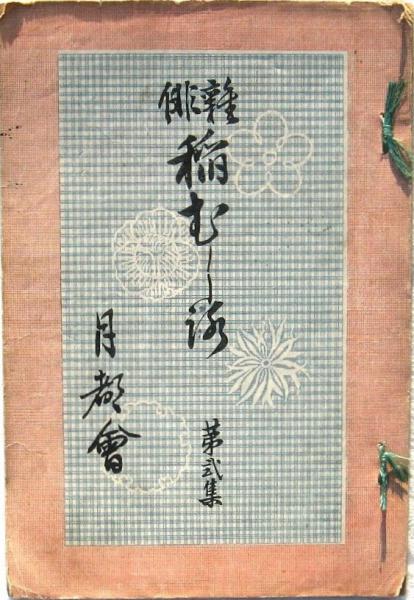 雜俳
稲むしろ
第弐集
月都會